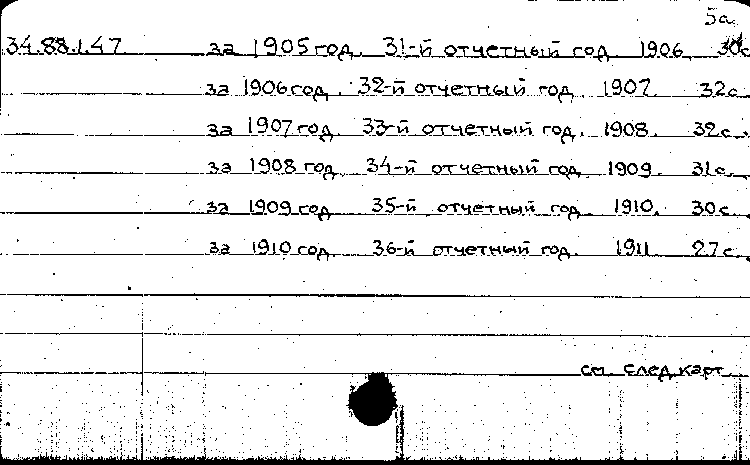 5а
34.88.1.47 за 1905 год. 31-й отчетный год. 1906. 30с
за 1906 год. 32-й отчетный год. 1907. 32с.
за 1907 год. 33-й отчетный год. 1908. 32с.
за 1908 год. 34-й отчетный год. 1909. 31с.
за 1909 год. 35-й отчетный год. 1910. 30с.
за 1910 год. 36-й отчетный год. 1911 27с.
см. след. карт.